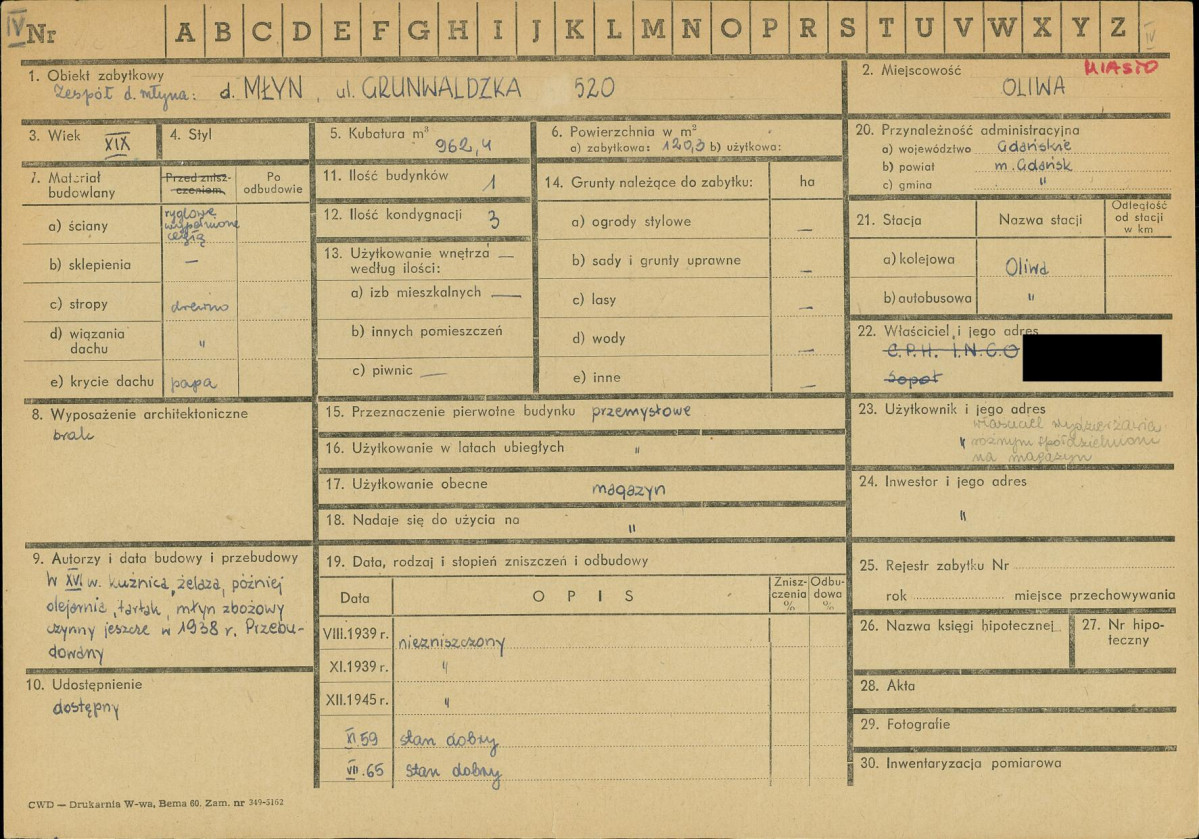 IV Nr A B C D E F G H I J K L M N O P R S T U V W X Y Z IV
1. Obiekt zabytkowy
Zespół d. młyna: d. MŁYN, ul. GRUNWALDZKA 520
2. Miejscowość MIASTO
OLIWA
3. Wiek XIX
4. Styl
5. Kubatura m³
962,4
6. Powierzchnia w m²
a) zabytkowa: 120,3 b) użytkowa:
7. Materiał budowlany
Przed znisz-
czeniem
Po
odbudowie
a) ściany ryglowe
wypełnione
cegłą
b) sklepienia —
c) stropy drewno
d) wiązania
dachu "
e) krycie dachu papa
8. Wyposażenie architektoniczne
brak
9. Autorzy i data budowy i przebudowy
W XVI w. kuźnica żelaza, później
olejarnia, tartak, młyn zbożowy
czynny jeszcze w 1938 r. Przebu-
dowany
10. Udostępnienie
dostępny
11. Ilość budynków 1
12. Ilość kondygnacji 3
13. Użytkowanie wnętrza —
według ilości:
a) izb mieszkalnych —
b) innych pomieszczeń
c) piwnic —
14. Grunty należące do zabytku: ha
a) ogrody stylowe —
b) sady i grunty uprawne —
c) lasy —
d) wody —
e) inne —
15. Przeznaczenie pierwotne budynku przemysłowe
16. Użytkowanie w latach ubiegłych "
17. Użytkowanie obecne magazyn
18. Nadaje się do użycia na "
19. Data, rodzaj i stopień zniszczeń i odbudowy
Data OPIS Znisz-
czenia
% Odbu-
dowa
%
VIII.1939 r. niezniszczony
XI.1939 r. "
XII.1945 r. "
XI 59 stan dobry
VII.65 stan dobry
20. Przynależność administracyjna
a) województwo Gdańskie
b) powiat m. Gdańsk
c) gmina "
21. Stacja Nazwa stacji Odległość
od stacji
w km
a) kolejowa Oliwa
b) autobusowa "
22. Właściciel i jego adres
C.P.H. I.N.C.O
Sopot
23. Użytkownik i jego adres
właściciel wydzierżawia
" różnym spółdzielniom
na magazyn
24. Inwestor i jego adres
"
25. Rejestr zabytku Nr
rok miejsce przechowywania
26. Nazwa księgi hipotecznej
27. Nr hipo-
teczny
28. Akta
29. Fotografie
30. Inwentaryzacja pomiarowa
CWD — Drukarnia W-wa, Bema 60. Zam. nr 349-5162